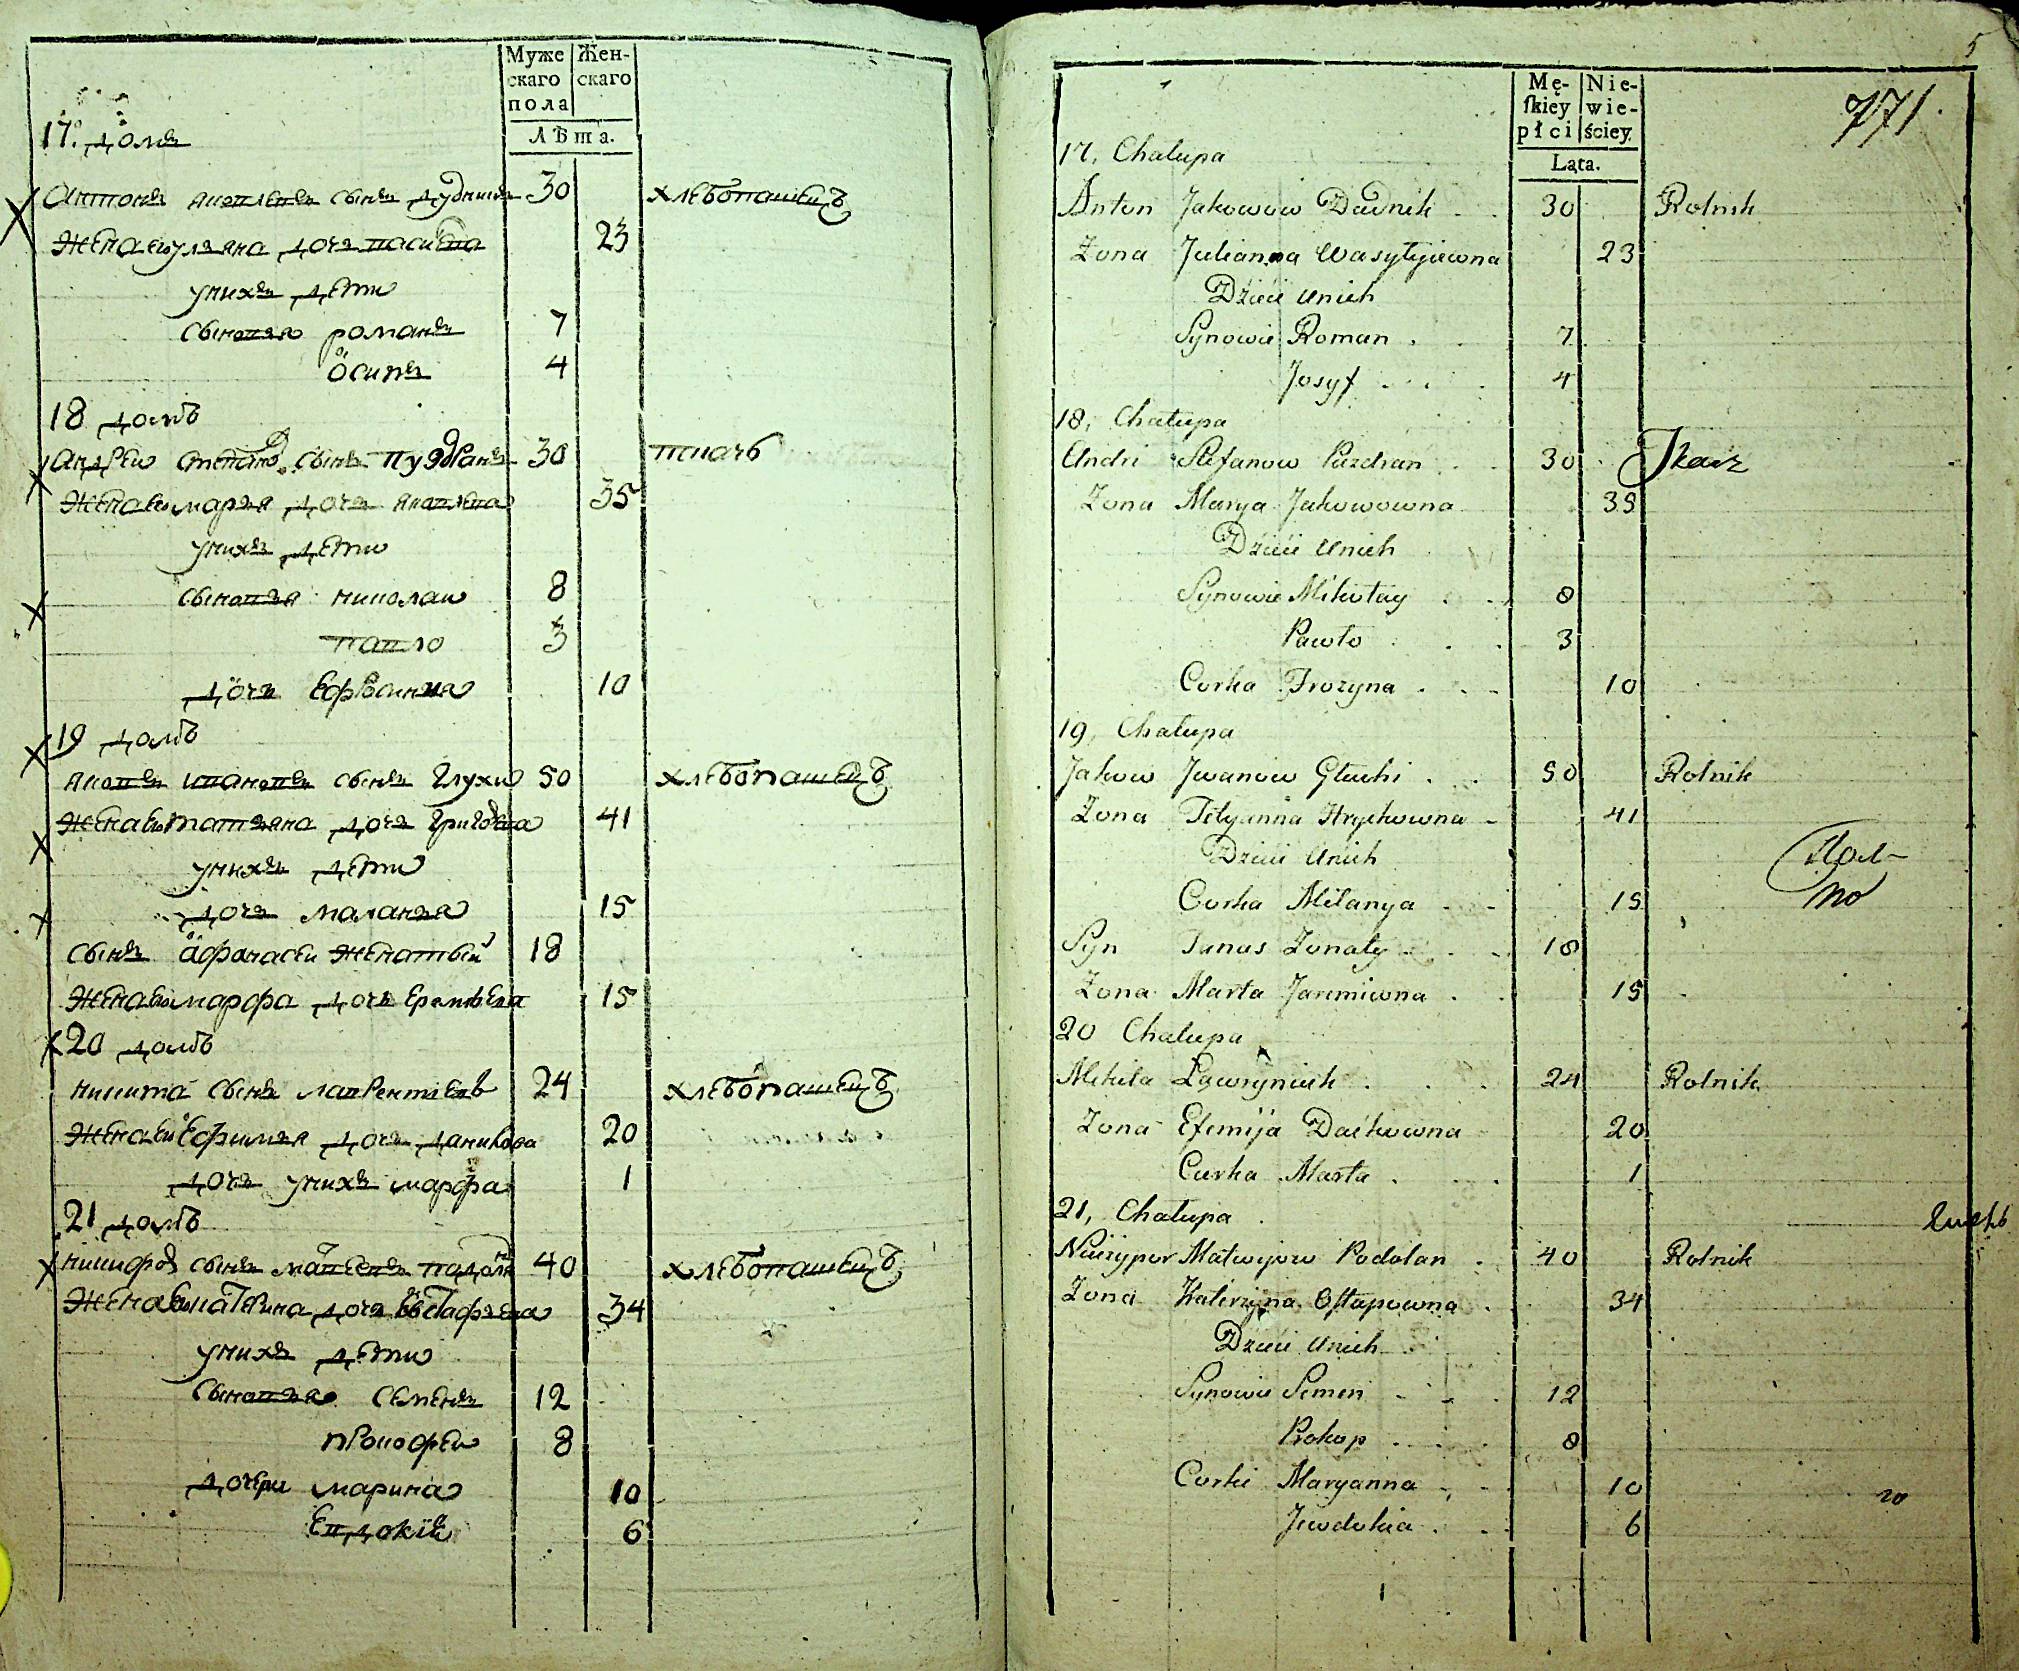 Муже Жен-
скаго скаго
пола
лѣта.
17. домъ
Антонъ яковлевъ сынъ дудникъ 30 хлебопашецъ
жена его ульяна дочь василева 23
унихъ дети
сыновья романъ 7
осипъ 4
18 домъ
андрей степановъ сынъ пуздранъ 30 ткачь
жена его марья дочь яковлева 35
унихъ дети
сыновья николай 8
павло 3
дочь ефросинья 10
19 домъ
яковъ ивановъ сынъ глухи 50 хлебопашецъ
жена его татьяна дочь григорева 41
унихъ дети
дочь маланья 15
сынъ афанасеи женатый 18
жена его марфа дочь еремѣева 15
20 домъ
никита сынъ лаврентьевъ 24 хлебопашецъ
жена его ефимья дочь данилова 20
дочь унихъ марфа 1
21 домъ
никифоръ сынъ матвеевъ падолянъ 40 хлебопашецъ
жена его катерина дочь евстафьева 34
унихъ дети
сыновья семенъ 12
прокофеи 8
дочери марина 10
евдокия 6
5
771.
Mę- Nie-
ſkiey wie-
płci ściey.
Lata.
17, Chałupa
Anton Jakowow Dudnik 30 Rolnik
Zona Julianna Wasylyjewna 23
Dzieci unich
Synowie Roman 7
Josyf 4
18, Chałupa
Andri Stefanow Puzdran 30 Tkacz
Zona Marya Jakowowna 35
Dzieci unich
Synowie Mikołay 8
Pawło 3
Corka Frozyna 10
19, Chałupa
Jakow Jwanow Głuchi 50 Rolnik
Zona Tetyanna Hryckowna 41
Dzieci Unich
Corka Milanya 15
Syn Panas Zonaty 18
Zona Marta Jaremiwna 15
20 Chałupa
Mikita Ławryniuk 24 Rolnik
Zona Efimija Daćkowna 20
Curka Marta 1
21, Chałupa
Niczypor Matwijow Podolan 40 Rolnik
Zona Katerzyna Ostapowna 34
Dzieci Unich
Synowie Semen 12
Prokop 8
Corki Maryanna 10
Jewdokia 6